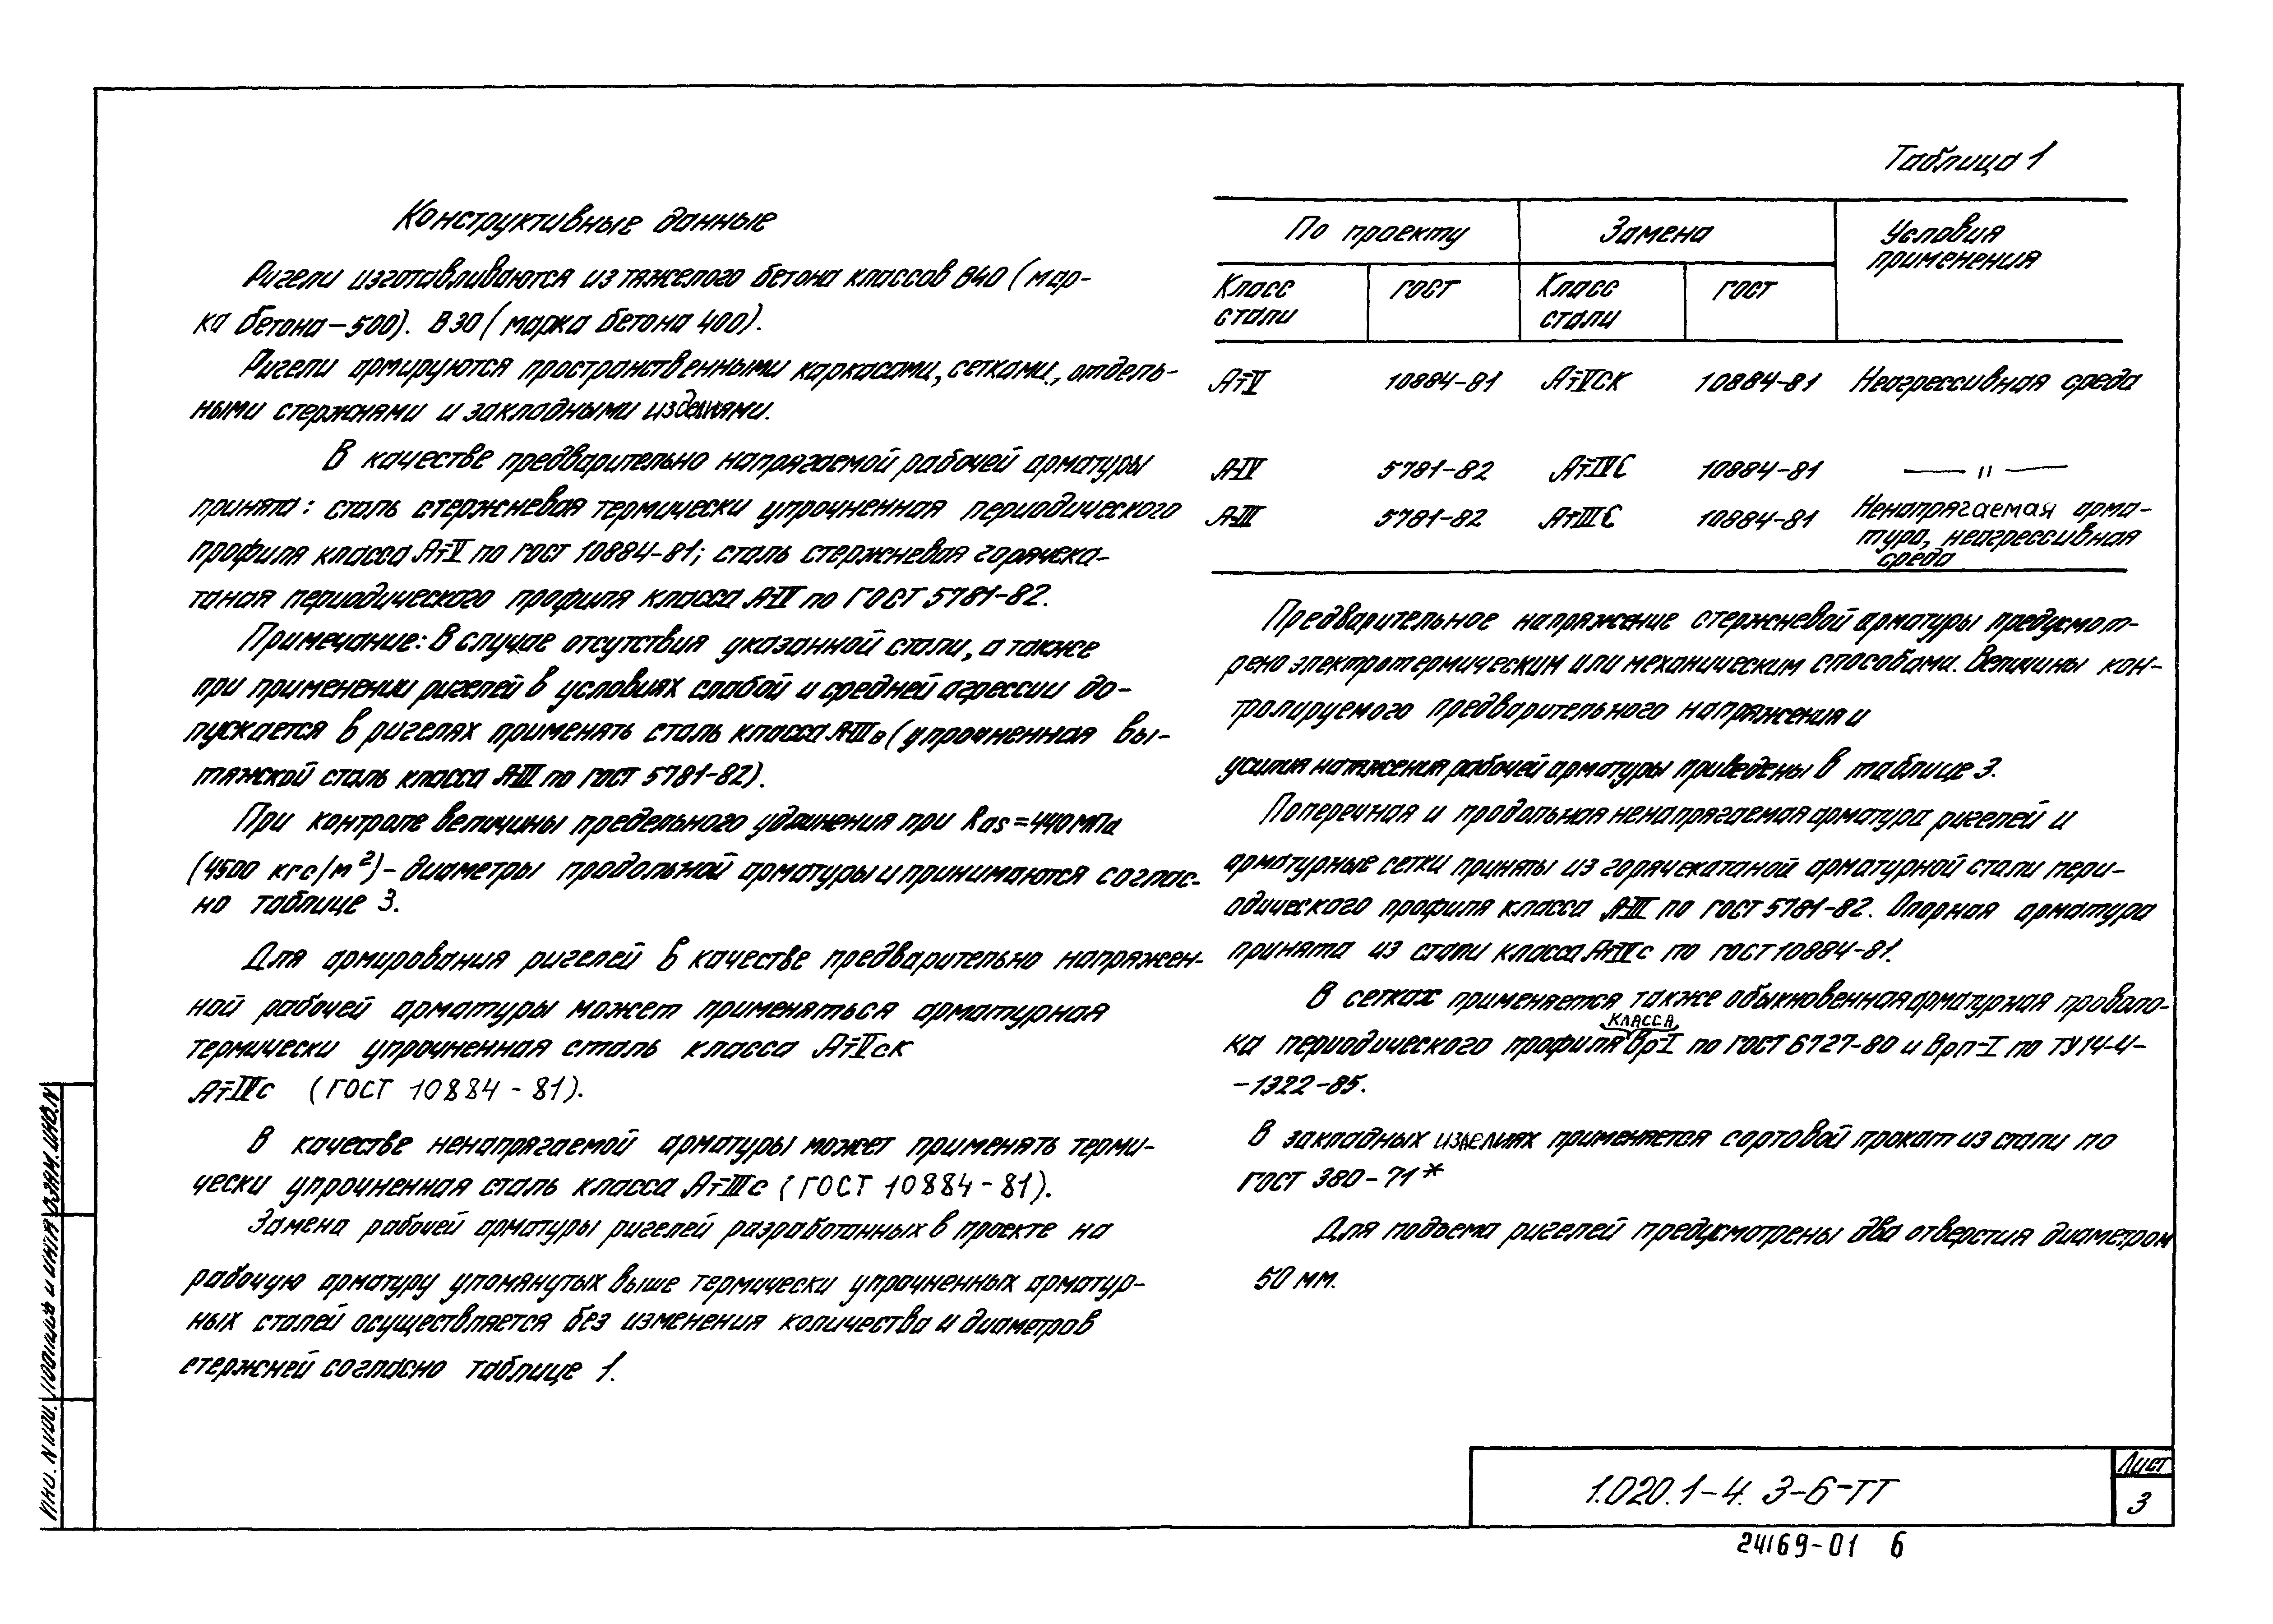 Конструктивные данные
Ригели изготавливаются из тяжелого бетона классов В40 (мар-
ка бетона-500). В30 (марка бетона 400).
Ригели армируются пространственными каркасами, сетками, отдель-
ными стержнями и закладными изделиями.
В качестве предварительно напрягаемой рабочей арматуры
принята: сталь стержневая термически упрочненная периодического
профиля класса Ат-V по ГОСТ 10884-81; сталь стержневая горячека-
таная периодического профиля класса А-IV по ГОСТ 5781-82.
Примечание: В случае отсутствия указанной стали, а также
при применении ригелей в условиях слабой и средней агрессии до-
пускается в ригелях применять сталь класса А-IIIв (упрочненная вы-
тяжской сталь класса А-III по ГОСТ 5781-82).
При контроле величины предельного удлинения при Ras=440МПа
(4500 кгс/м²)-диаметры продольной арматуры и принимаются соглас-
но таблице 3.
Для армирования ригелей в качестве предварительно напряжен-
ной рабочей арматуры может применяться арматурная
термически упрочненная сталь класса Ат-Vск
Ат-IVс (ГОСТ 10884-81).
В качестве ненапрягаемой арматуры может применять терми-
чески упрочненная сталь класса Ат-IIIс (ГОСТ 10884-81).
Замена рабочей арматуры ригелей разработанных в проекте на
рабочую арматуру упомянутых выше термически упрочненных арматур-
ных сталей осуществляется без изменения количества и диаметров
стержней согласно таблице 1.
Таблица 1
По проекту Замена Условия
применения
Класс
стали ГОСТ Класс
стали ГОСТ
Ат-V 10884-81 Ат-VСК 10884-81 Неагрессивная среда
А-IV 5781-82 Ат-IVС 10884-81 — " —
А-III 5781-82 Ат-IIIС 10884-81 Ненапрягаемая арма-
тура, неагрессивная
среда
Предварительное напряжение стержневой арматуры предусмот-
рено электротермическим или механическим способами. Величины кон-
тролируемого предварительного напряжения и
усилия натяжения рабочей арматуры приведены в таблице 3.
Поперечная и продольная ненапрягаемая арматура ригелей и
арматурные сетки приняты из горячекатаной арматурной стали пери-
одического профиля класса А-III по ГОСТ 5781-82. Опорная арматура
принята из стали класса Ат-IVс по ГОСТ 10884-81.
В сетках применяется также обыкновенная арматурная проволо-
ка периодического профиля класса Вр-I по ГОСТ 6727-80 и Врп-I по ТУ14-4-
-1322-85.
В закладных изделиях применяется сортовой прокат из стали по
ГОСТ 380-71*
Для подъема ригелей предусмотрены два отверстия диаметром
50 мм.
1.020.1-4. 3-6-ТТ
Лист
3
24169-01 6
Инв. N подл. Подпись и дата Взам. инв. N